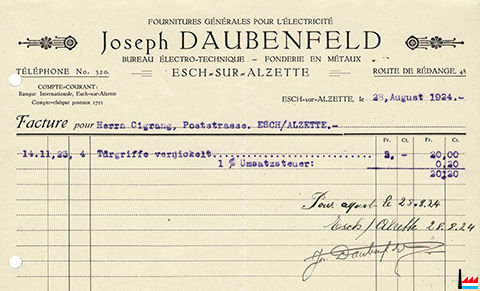 FOURNITURES GÉNÉRALES POUR L'ÉLECTRICITÉ
Joseph DAUBENFELD
BUREAU ÉLECTRO-TECHNIQUE - FONDERIE EN MÉTAUX
TÉLÉPHONE No. 320. ESCH-SUR-ALZETTE ROUTE DE RÉDANGE, 48
COMPTE-COURANT:
Banque Internationale, Esch-sur-Alzette
Compte-chèque postaux 1751
ESCH-SUR-ALZETTE, le 28, August 1924.-
Facture pour Herrn Cigrang, Poststrasse. ESCH/ALZETTE.-
Fr. C. Fr. C.
14.11.23, 4 Türgriffe vernickelt 5,- 20,00
1 % Umsatzsteuer: 0,20
20,20
Pour acquit le 25.8.24
Esch/Alzette 28.8.24
Jos. Daubenfeld